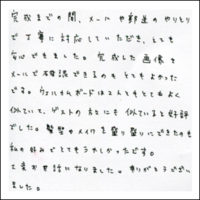 完成までの間、メールや郵送のやりとり
で丁寧に対応していただき、とても
安心できました。完成した画像を
メールで確認できるのもとてもよかった
です。ウェルカムボードはとてもよく
似ていて、ゲストの方々にも似ていると好評
でした。髪型やメイクを盛り盛りにできたのも
私の好みでとてもうれしかったです。
大変お世話になりました。ありがとうござい
ました。